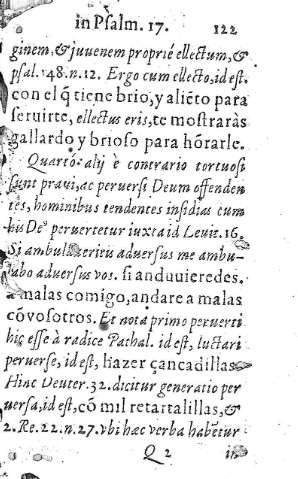 in Psalm. 17. 122
ginem, & juvenem proprié ellectum, &
psal. 148. n. 12. Ergo cum ellecto, id est.
con el q̃ tiene brio, y aliẽto para
seruirte, ellectus eris, te mostraràs
gallardo y brioso para hõrarle.
Quartò alij è contrario tortuosi
sunt praui, ac peruersi Deum offenden
tes, hominibus tendentes insidias cum
his De⁹ peruertetur iuxta id Leuit. 16.
Si ambulaueritis aduersus me ambu-
labo aduersus vos. si anduuieredes.
a malas comigo, andare a malas
cõvosotros. Et nota primo peruerti
hic esse à radice Pathal. id est, luctari
peruerse, id est, hazer çancadillas
Hinc Deuter. 32. dicitur generatio per
uersa, id est, cõ mil retartalillas, &
2. Re. 22. n. 27. vbi hæc verba habẽtur
Q 2 in